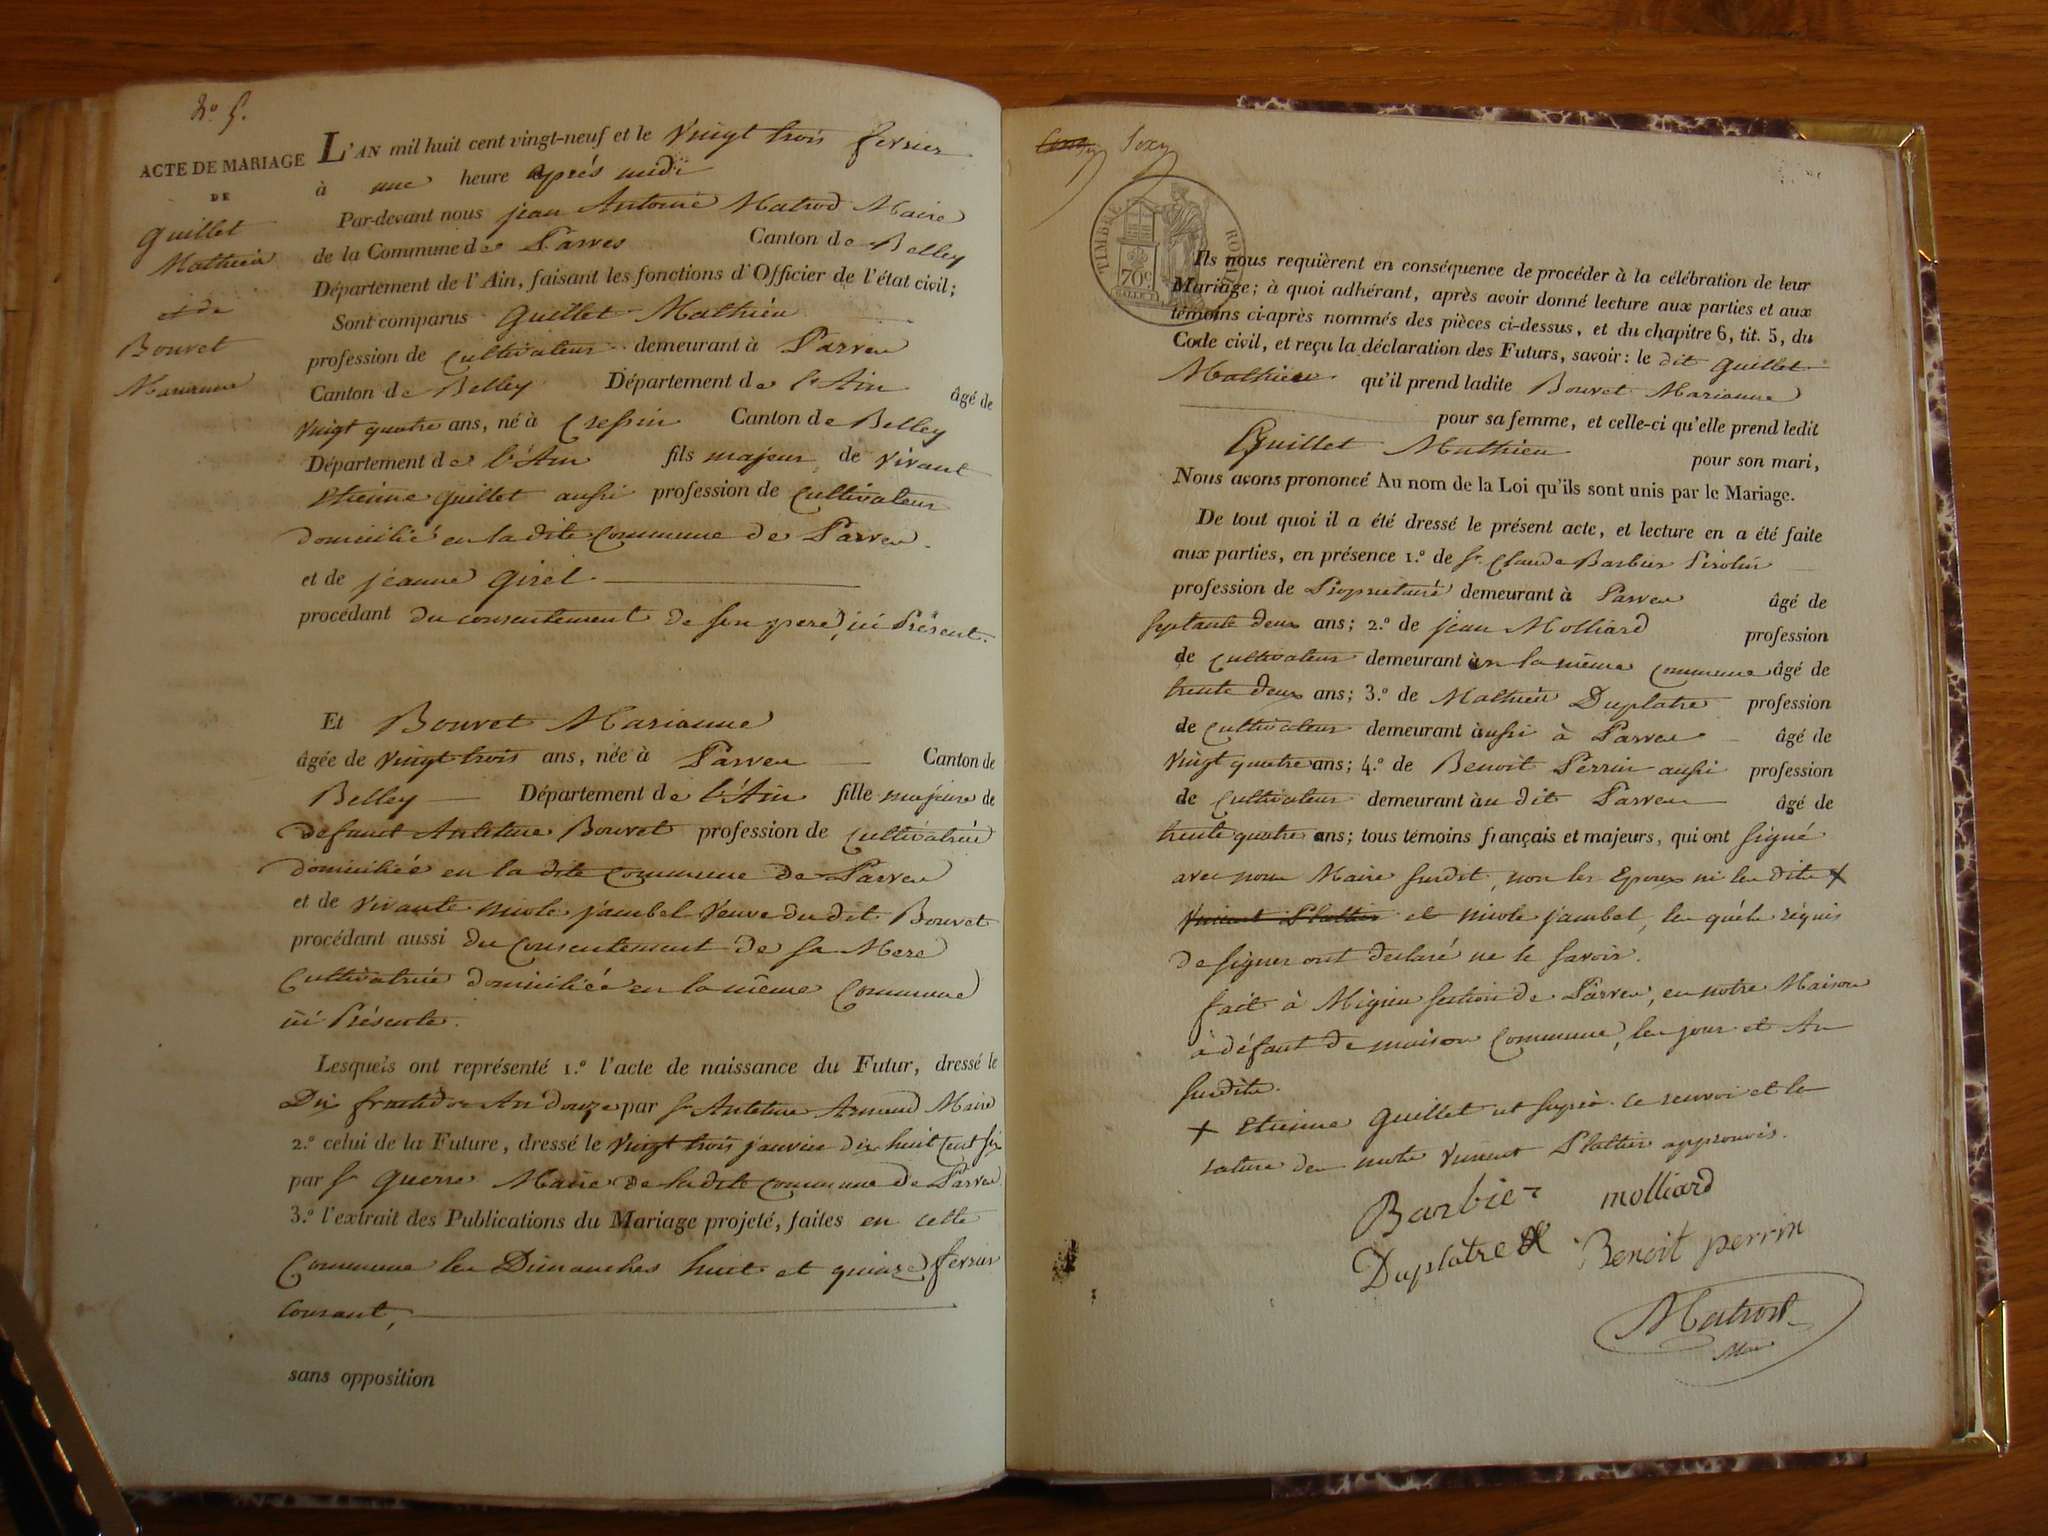 N° 5.
ACTE DE MARIAGE
DE
Guillet
Mathieu
et de
Bouvet
Marianne
L'AN mil huit cent vingt-neuf et le vingt trois fevrier
à une heure après midi
Par-devant nous jean Antoine Matrod Maire
de la Commune de Parves Canton de Belley
Département de l'Ain, faisant les fonctions d'Officier de l'état civil;
Sont comparus Guillet Mathieu
profession de Cultivateur demeurant à Parves
Canton de Belley Département de l'Ain âgé de
vingt quatre ans, né à Cressin Canton de Belley
Département de l'Ain fils majeur de vivant
Etienne Guillet aussi profession de Cultivateur
domicilié en la dite Commune de Parves
et de jeanne Girel
procédant du consentement de son pere, ici Présent.
Et Bouvet Marianne
âgée de vingt trois ans, née à Parves Canton de
Belley Département de l'Ain fille majeure de
defunt Antelme Bouvet profession de Cultivatrice
domiciliée en la dite Commune de Parves
et de vivante nicole jambel veuve du dit Bouvet
procédant aussi du Consentement de sa Mere
Cultivatrice domiciliée en la même Commune
ici Présente.
Lesquels ont représenté 1.° l'acte de naissance du Futur, dressé le
Dix fructidor An douze par Sr Antelme Armand Maire
2.° celui de la Future, dressé le vingt trois janvier dix huit cent six
par Sr Guerre Maire de la dite commune de Parves
3.° l'extrait des Publications du Mariage projeté, faites en cette
Commune les Dimanches huit et quinze fevrier
courant,
sans opposition
TIMBRE ROYAL
70c
Ils nous requièrent en conséquence de procéder à la célébration de leur
Mariage; à quoi adhérant, après avoir donné lecture aux parties et aux
témoins ci-après nommés des pièces ci-dessus, et du chapitre 6, tit. 5, du
Code civil, et reçu la déclaration des Futurs, savoir: le dit Guillet
Mathieu qu'il prend ladite Bouvet Marianne
pour sa femme, et celle-ci qu'elle prend ledit
Guillet Mathieu pour son mari,
Nous avons prononcé Au nom de la Loi qu'ils sont unis par le Mariage.
De tout quoi il a été dressé le présent acte, et lecture en a été faite
aux parties, en présence 1.° de Sr Claude Barbier Pirolin
profession de Proprietaire demeurant à Parves âgé de
septante deux ans; 2.° de jean Molliard profession
de Cultivateur demeurant en la même commune âgé de
trente deux ans; 3.° de Mathieu Duplatre profession
de Cultivateur demeurant aussi à Parves âgé de
vingt quatre ans; 4.° de Benoit Perrin aussi profession
de Cultivateur demeurant au dit Parves âgé de
trente quatre ans; tous témoins français et majeurs, qui ont signé
avec nous Maire susdit, non les Epoux ni les dits +
Vincent Plattier et nicole jambel, les quels requis
de signer ont declaré ne le savoir.
fait à Migieu section de Parves, en notre Maison
à défaut de maison Commune, les jour et An
susdits.
+ Etienne Guillet et Surèà ce renvoi et la
rature des mots Vincent Plattier approuvés.
Barbier molliard
Duplâtre Benoit perrin
Matrod
Mre